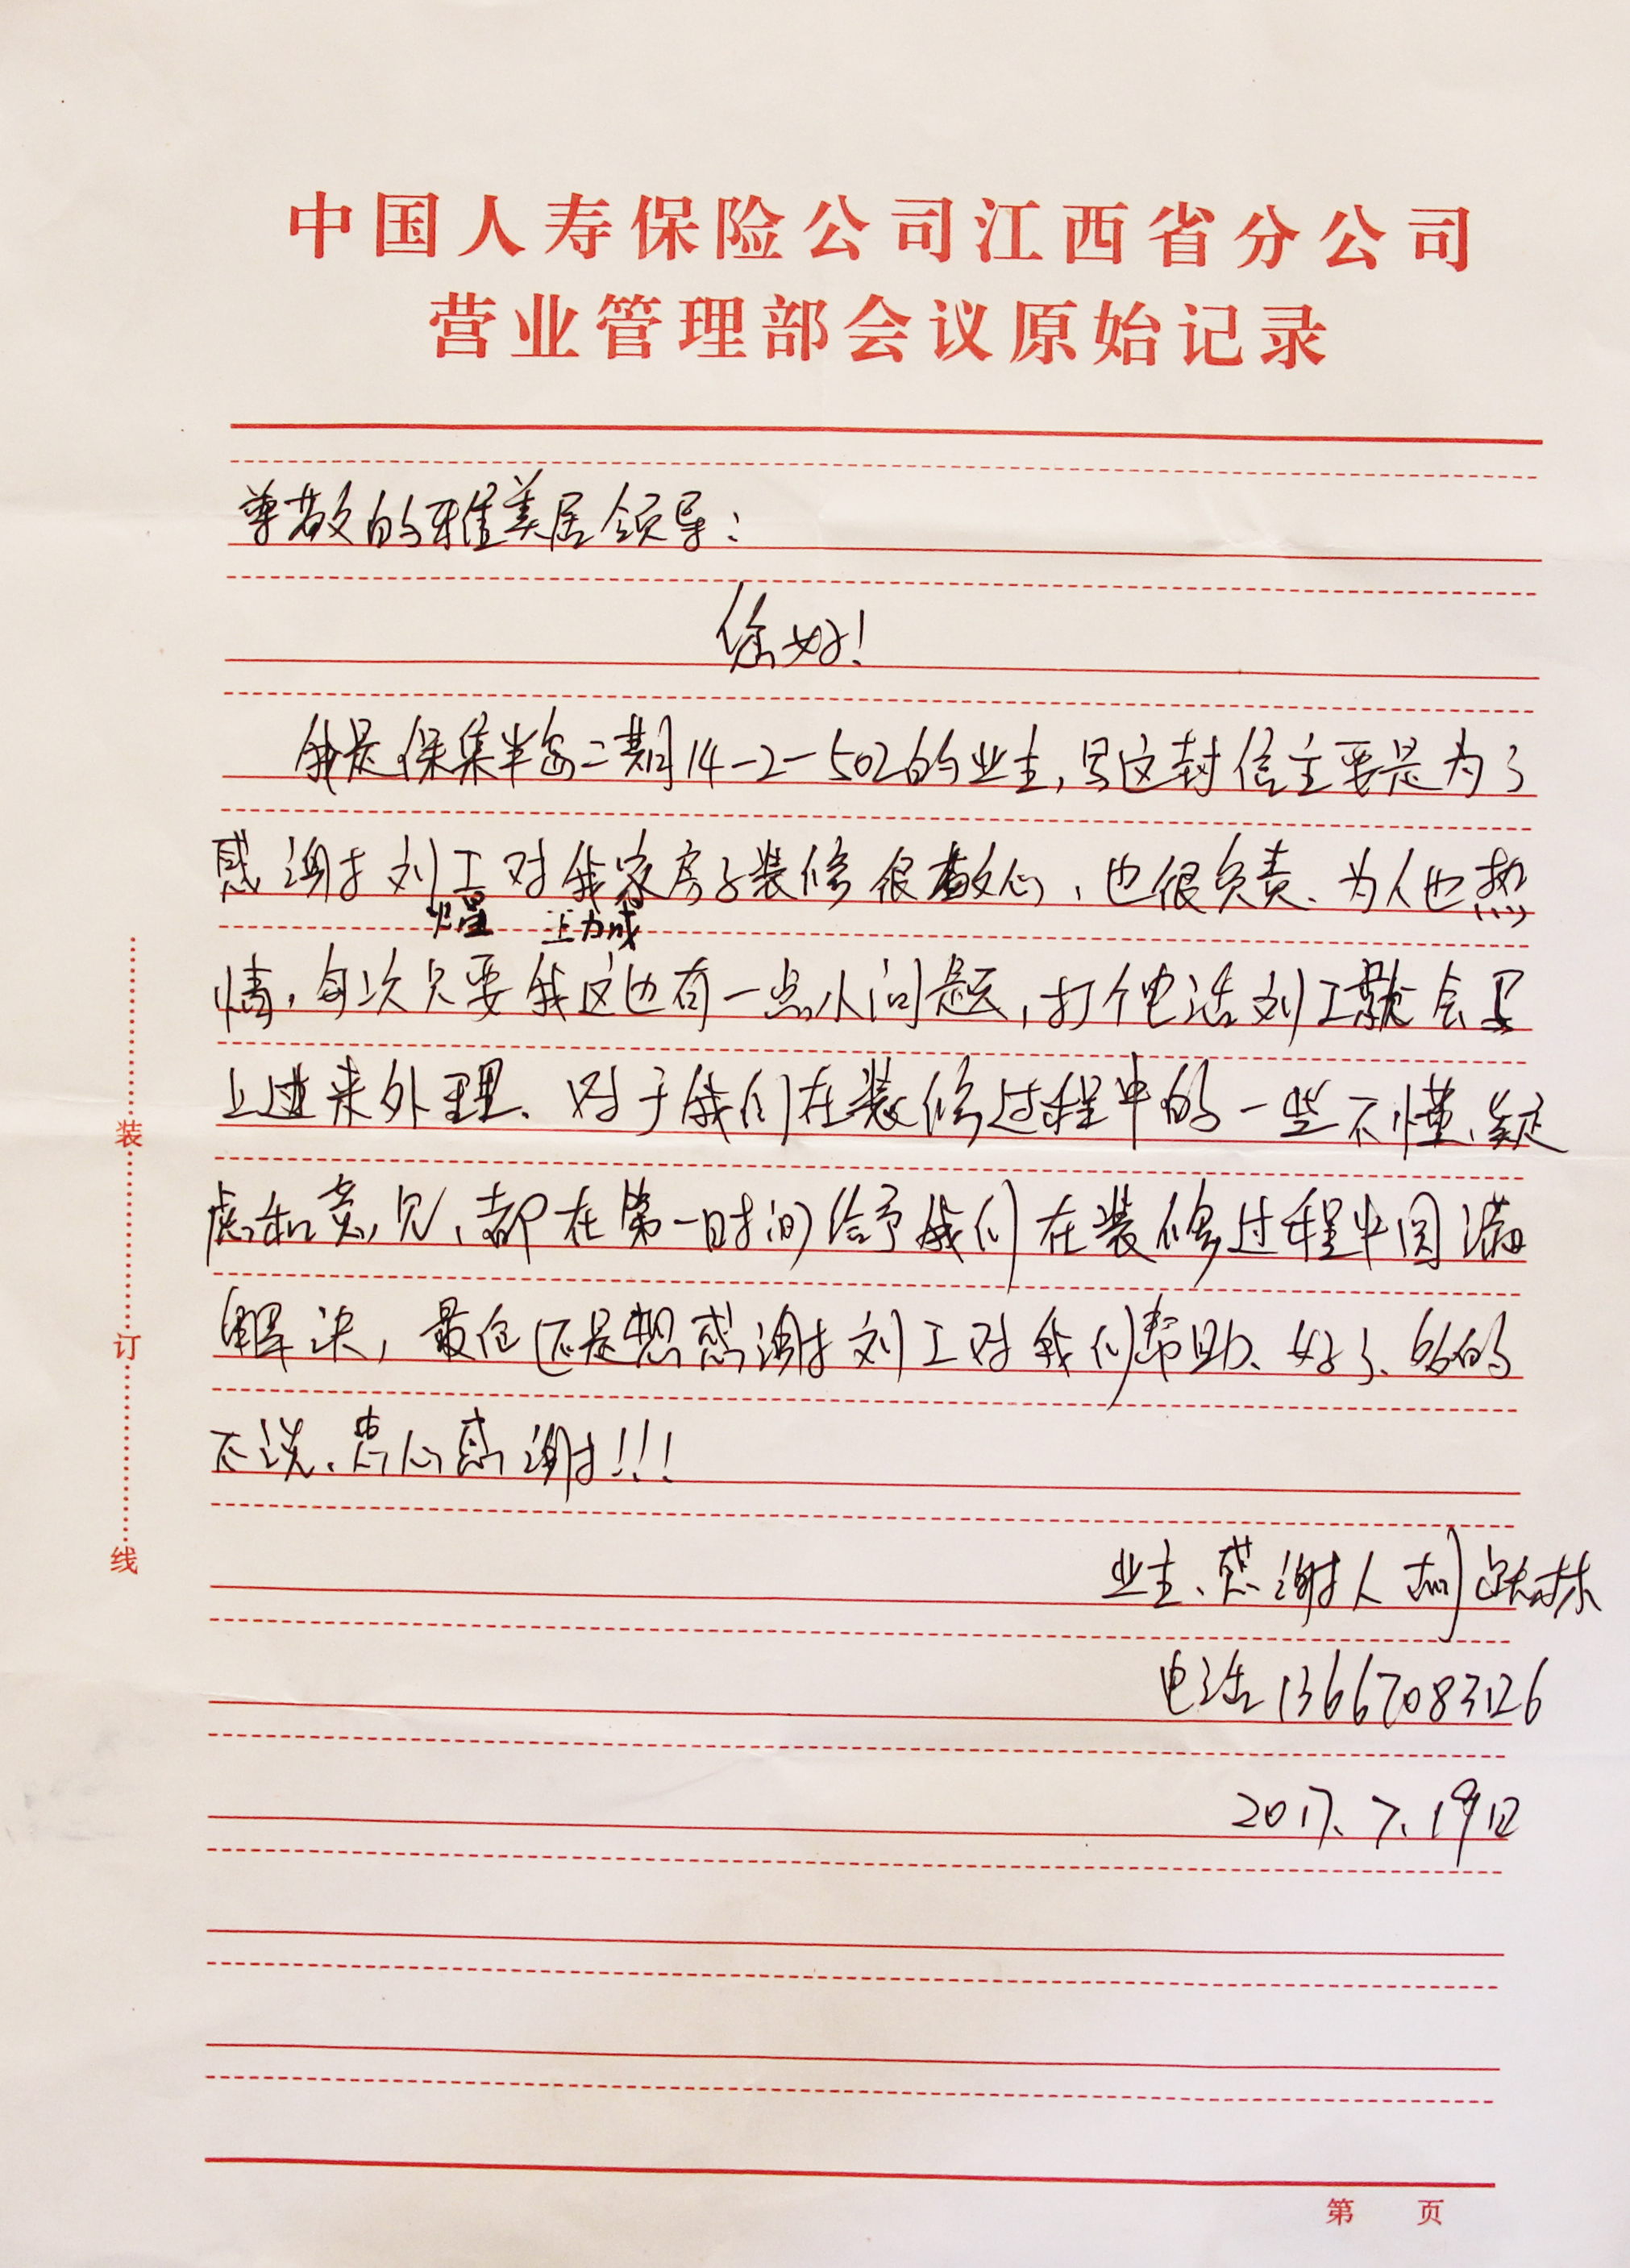 中国人寿保险公司江西省分公司
营业管理部会议原始记录
尊敬的雅美居领导:
您好!
我是保集半岛二期14-2-502的业主,写这封信主要是为了
感谢刘工对我家房子装修很敬心、也很负责、为人也热
煌
情,每次只要我这边有一点小问题,打个电话刘工就会马
上过来处理、对于我们在装修过程中的一些不懂、疑
虑和意见、都在第一时间给予我们在装修过程中圆满
解决,最后还是想感谢刘工对我们帮助、好了、多的
不说、衷心感谢!!!
业主、感谢人
电话13667083126
2017.7.19日
装
订
线
第 页